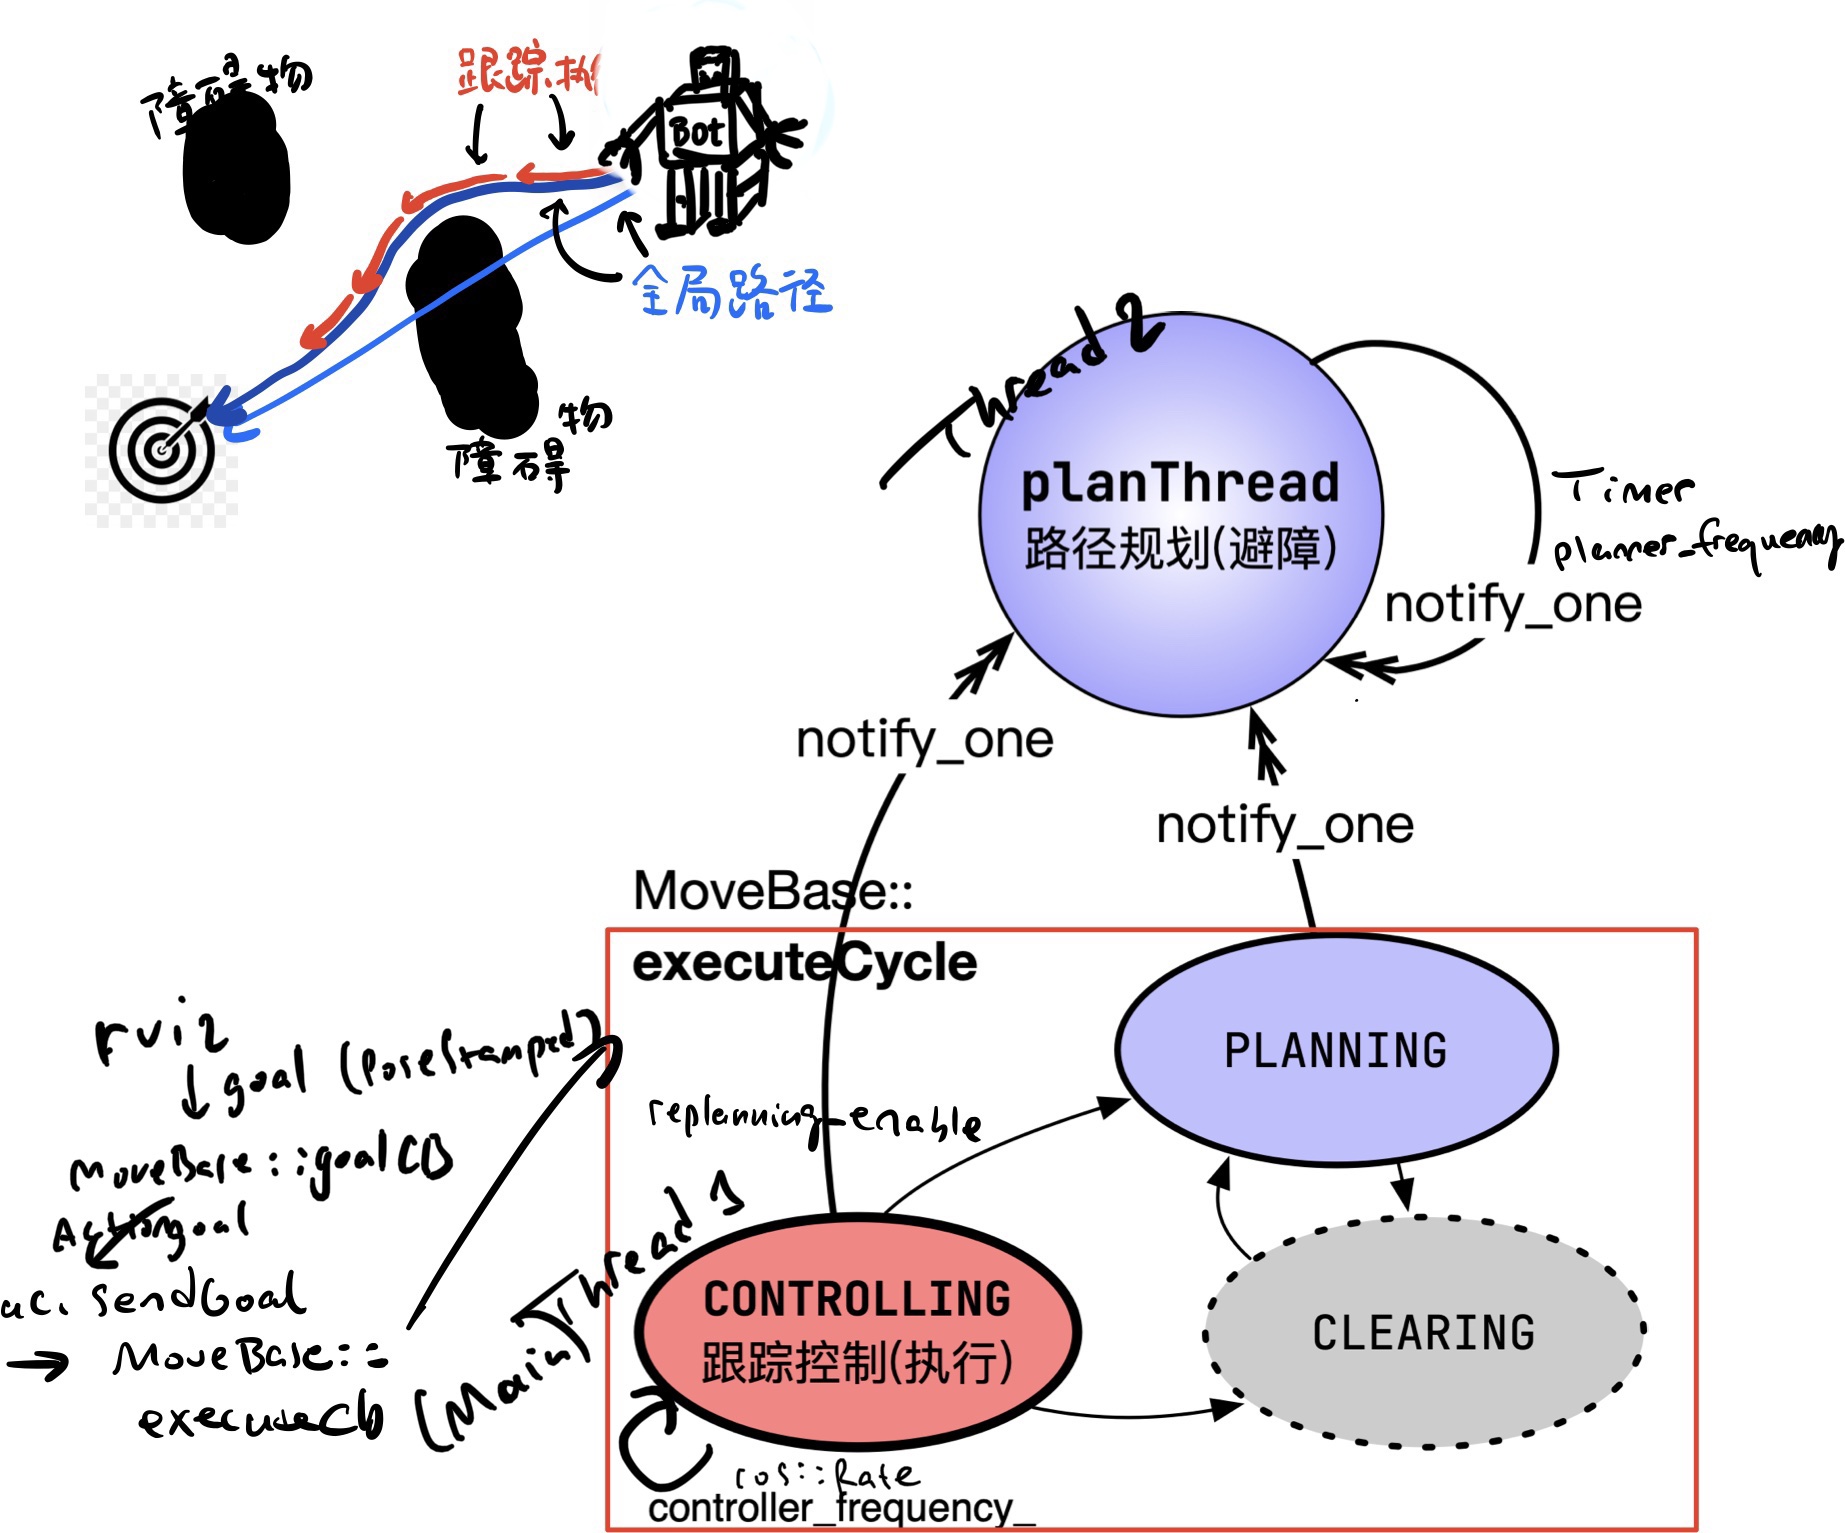 障碍物
跟踪.执
Bot
全局路径
障碍物
Thread 2
planThread
路径规划(避障)
Timer
planner_frequency
notify_one
notify_one
notify_one
MoveBase::
executeCycle
PLANNING
rviz
goal (PoseStamped)
replanning_enable
MoveBase::goalCB
Actiongoal
ac. sendGoal
→ MoveBase::
executeCb
(Main) Thread 1
CONTROLLING
跟踪控制(执行)
CLEARING
ros::Rate
controller_frequency_